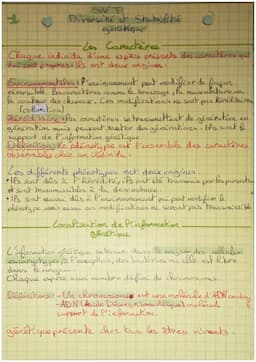 1
SVT
Diversité et Stabilité
génétique
Les Caractères
Chaque individu d'une espèce présente des caractères qui
lui sont propres. Ils ont deux origines :
Environnementales : l'environnement peut modifier de façon
réversible les caractères comme le bronzage, la musculature ou
la couleur des cheveux. Ces modifications ne sont pas héréditaires
Héréditaire : les caractères se transmettent de génération en
génération mais peuvent sauter des générations. Ils sont le
support de l'information génétique.
Définition : le phénotype est l'ensemble des caractères
observables chez un individu.
Les différents phénotypes ont deux origines :
• Ils sont dûs à l'hérédité, ils ont été transmis par les parents
et sont transmissibles à la descendance
• Ils sont aussi dûs à l'environnement qui peut modifier le
phénotype mais ces modifications ne seront pas transmissibles
Localisation de l'information
génétique
L'information génétique se trouve dans le noyau des cellules
eucaryotes, à l'exception des bactéries où elle est libre
Chaque espèce a un nombre défini de chromosomes.
Définitions : - Un chromosome est une molécule d'ADN
- ADN (Acide Désoxyribonucléique) molécule
support de l'information.
génétique présente chez tous les êtres vivants.